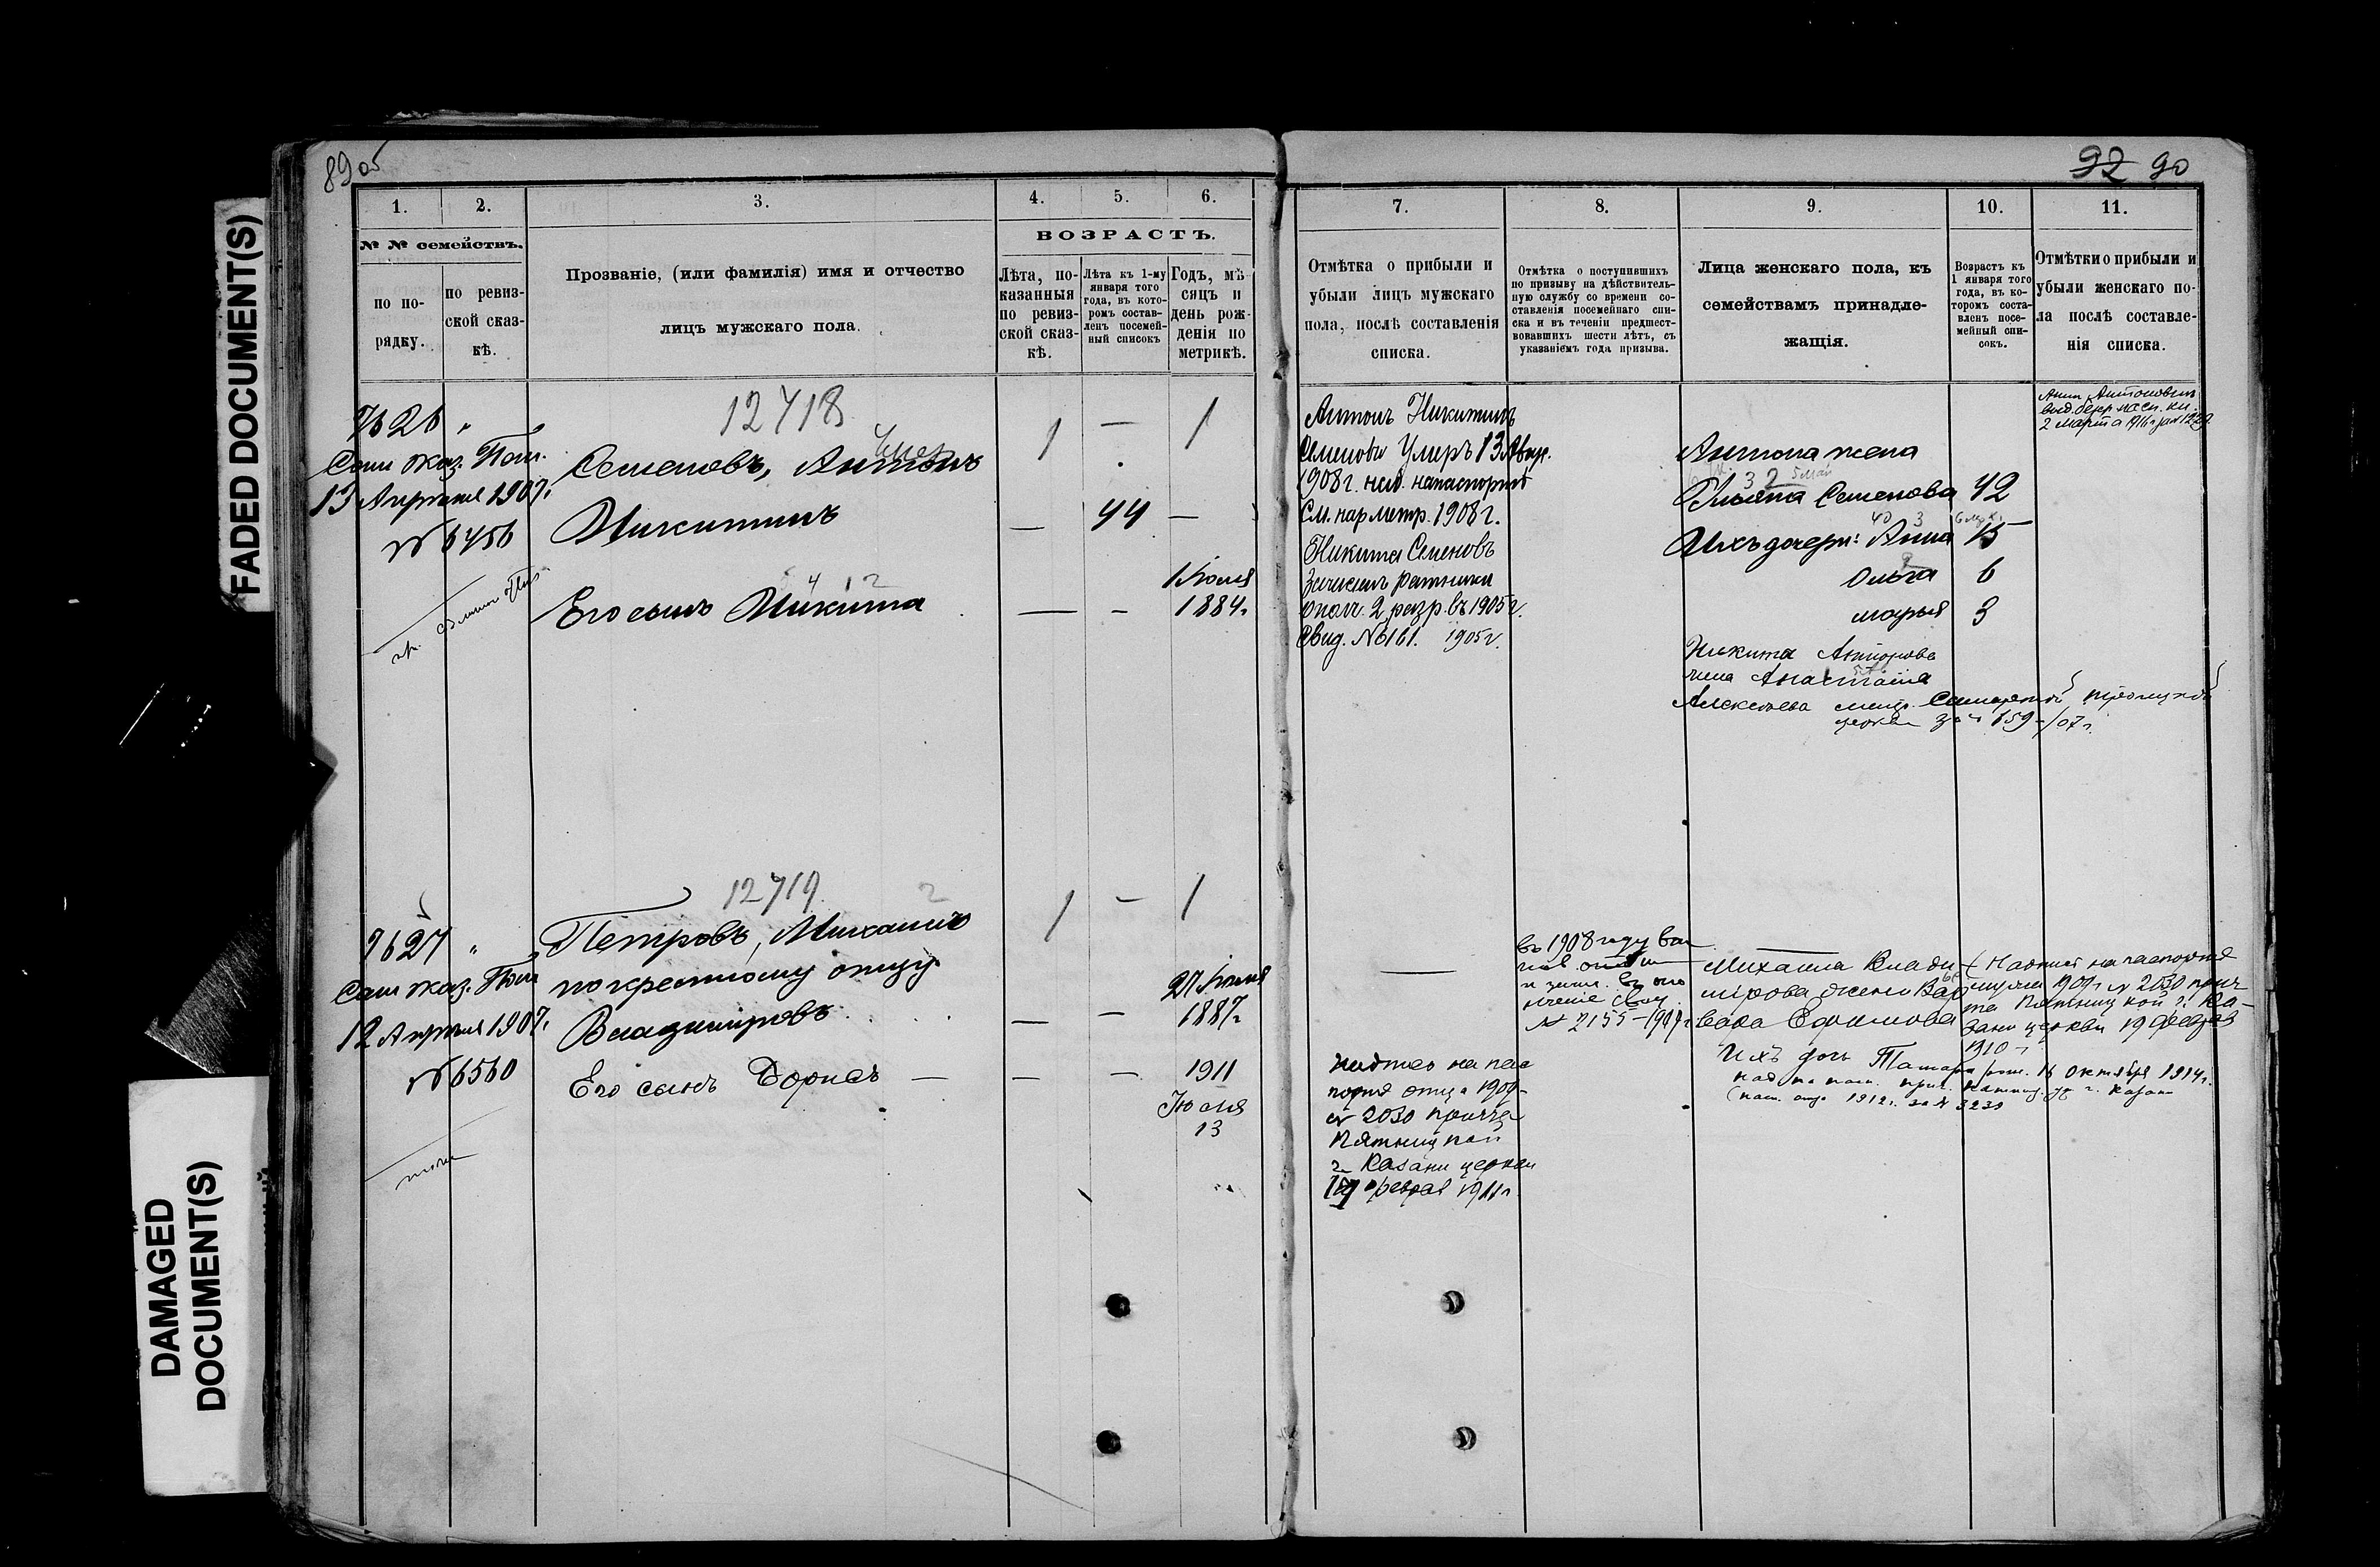 FADED DOCUMENT(S)
DAMAGED
DOCUMENT(S)
89 об
92 90
1.
2.
3.
4.
5.
6.
№ № семействъ.
по по-
рядку.
по ревиз-
ской сказ-
кѣ.
Прозваніе, (или фамилія) имя и отчество
лицъ мужскаго пола.
ВОЗРАСТЪ.
Лѣта, по-
казанныя
по ревиз-
ской сказ-
кѣ.
Лѣта къ 1-му
января того
года, въ кото-
ромъ состав-
ленъ посемей-
ный списокъ
Годъ, мѣ-
сяцъ и
день рож-
денія по
метрикѣ.
7.
8.
9.
10.
11.
Отмѣтка о прибыли и
убыли лицъ мужскаго
пола, послѣ составленія
списка.
Отмѣтка о поступившихъ
по призыву на дѣйствитель-
ную службу со времени со-
ставленія посемейнаго спи-
ска и въ теченіи предшест-
вовавшихъ шести лѣтъ, съ
указаніемъ года призыва.
Лица женскаго пола, къ
семействамъ принадле-
жащія.
Возрастъ къ
1 января того
года, въ ко-
торомъ соста-
вленъ посе-
мейный спи-
сокъ.
Отмѣтки о прибыли и
убыли женскаго по-
ла послѣ составле-
нія списка.
7626 "
Сам. каз. Пал.
13 Апрѣля 1907.
№ 6456
12718
умер
Семеновъ, Антонъ
Никитинъ
Его сынъ Никита
1 — 1
— 44 —
— — 1 Іюля
1884.
Антонъ Никитинъ
Семеновъ Умеръ 13 Авгус.
1908 г. над. на паспортѣ
См. нар. метр. 1908 г.
Никита Семеновъ
Зачисленъ ратники
ополч. 2 разр. въ 1905 г.
Свид. № 6161. 1905 г.
Антона жена
Семенова 42
Ихъ дочери: Анна 15
Ольга 6
Марья 3
Никита Антонова
жена Анастасія
Алексѣева метр. Самарской Троицкой
церкви за № 159-/07 г.
Анна Антоновна
2 Марта 1916 г. за №
7627 "
Сам каз. Пал
12 Апрѣля 1907.
№ 6560
12719
Петровъ, Михаилъ
по крестному отцу
Владиміровъ
Его сынъ Борисъ
1 — 1
— — 27 Іюня
1887 г
— — 1911
Іюля
13
надпись на пас
порте отца 1909-
№ 2030 причта
Пятницкой
г. Казани церкви
19 феврал 1911 г.
въ 1908 году
№ 2155-1909 г
Михаила Влади-
мірова жена Вар
вара Ефимова
(Надпись на паспортѣ
1909 г № 2030 прич-
та Пятницкой г. Ка-
зани церкви 19 феврал
1910 г
Ихъ дочь Тамара рож. 16 Октября 1914 г.
над. на пасп. прич. Пятниц. церк. г. Казани
(пасп. отца 1912 г. за № 3230